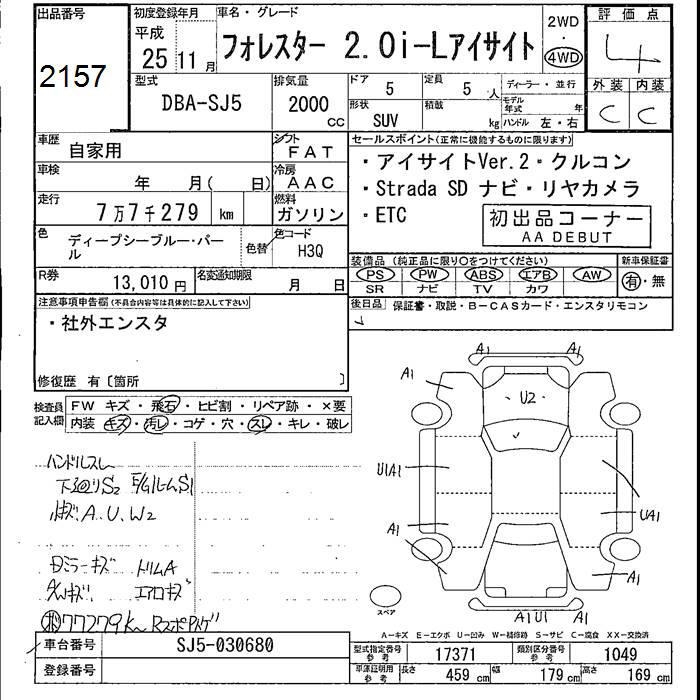 出品番号
2157
初度登録年月
平成
25 11 月
車名・グレード
フォレスター 2.0i-Lアイサイト
2WD
・
4WD
評価点
4
型式
DBA-SJ5
排気量
2000
CC
ドア 5
定員 5 人
形状 SUV
積載 kg
ディーラー・並行
モデル年式 年
ハンドル 左・右
外装 内装
C C
車歴
自家用
シフト
FAT
車検
年 月( 日)
冷房
AAC
走行
7万7千279 km
燃料
ガソリン
色
ディープシーブルー・パール
色替
色コード
H3Q
R券
13,010 円
名変通知期限
月 日
セールスポイント(正常に機能するものに限ります)
・アイサイトVer.2・クルコン
・Strada SD ナビ・リヤカメラ
・ETC
初出品コーナー
AA DEBUT
装備品 (純正品に限り〇をつけてください)
PS PW ABS エアB AW
SR ナビ TV カワ
新車保証書
有・無
後日品 保証書・取説・B-CASカード・エンスタリモコン
注意事項申告欄(不具合内容等は具体的に記入して下さい)
・社外エンスタ
修復歴 有〔箇所 〕
検査員記入欄
FW キズ・飛石・ヒビ割・リペア跡・×要
内装 キズ・汚レ・コゲ・穴・スレ・キレ・破レ
ハンドルスレ
下廻りS2 E/GルームS1
小キズA.U.W2
ミラーキズ トリムA
エアロキズ
77279km
A1 A1
A1
U2
U1A1
UA1
A1
A1
A1U1 A1
スペア
A-キズ E-エクボ U-凹み W-補修跡 S-サビ C-腐食 XX-交換済
車台番号
SJ5-030680
登録番号
型式指定番号 参考 17371
類別区分番号 参考 1049
車庫証明用 参考 長さ 459 cm 幅 179 cm 高さ 169 cm